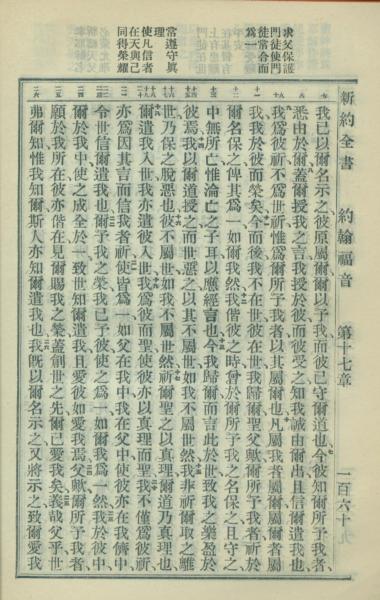 新約全書　約翰福音　第十七章　一百六十九
求父保護
門徒使門
徒常合而
為一
常遵守眞
理
使凡信者
在天與己
同得榮耀
我已以爾名示之彼原屬爾爾以予我而彼已守爾道也今彼知爾所予我者
悉由於爾蓋爾授我之言我授於彼而彼受之知我誠由爾出且信爾遣我也
我為彼祈不為世祈惟爾所予我者以其屬爾也凡屬我者屬爾屬爾者屬
我我於彼而榮矣今而後我不在世彼在世我歸爾聖父歟爾所予我者祈於
爾名保之俾其為一如爾我然我偕彼之時曾於爾所予我之名保之且守之
中無所亡惟淪亡之子耳以應經言也今我歸爾而言此於世致我之樂盈於
彼焉我以爾道授之而世惡之以其不屬世如我不屬世然我非祈爾取之離
世乃保之脫惡也彼不屬世如我不屬世然祈爾聖之以眞理爾道乃眞理也
爾遣我入世我亦遣彼入世我為彼而聖使彼亦以眞理而聖我不僅為彼祈
亦為因其言而信我者祈使皆為一如父在我中我在父中使彼亦在我儕中
令世信爾遣我也爾予我之榮我已予彼使之為一如爾我為一然我於彼中
爾於我中使之成全於一致世知爾遣我且愛彼如愛我焉父歟爾所予我者
願於我所在彼亦偕在見爾賜我之榮蓋創世之先爾已愛我矣義哉父乎世
弗爾知惟我知爾斯人亦知爾遣我也我旣以爾名示之又將示之致爾愛我